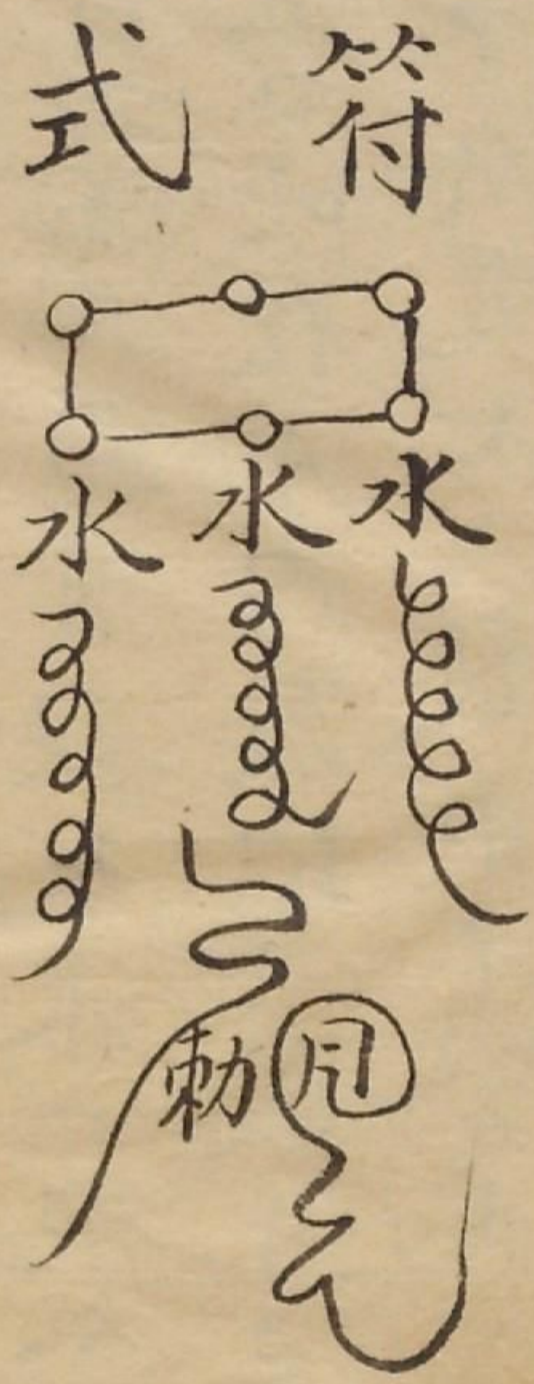 符式
水水水
勅